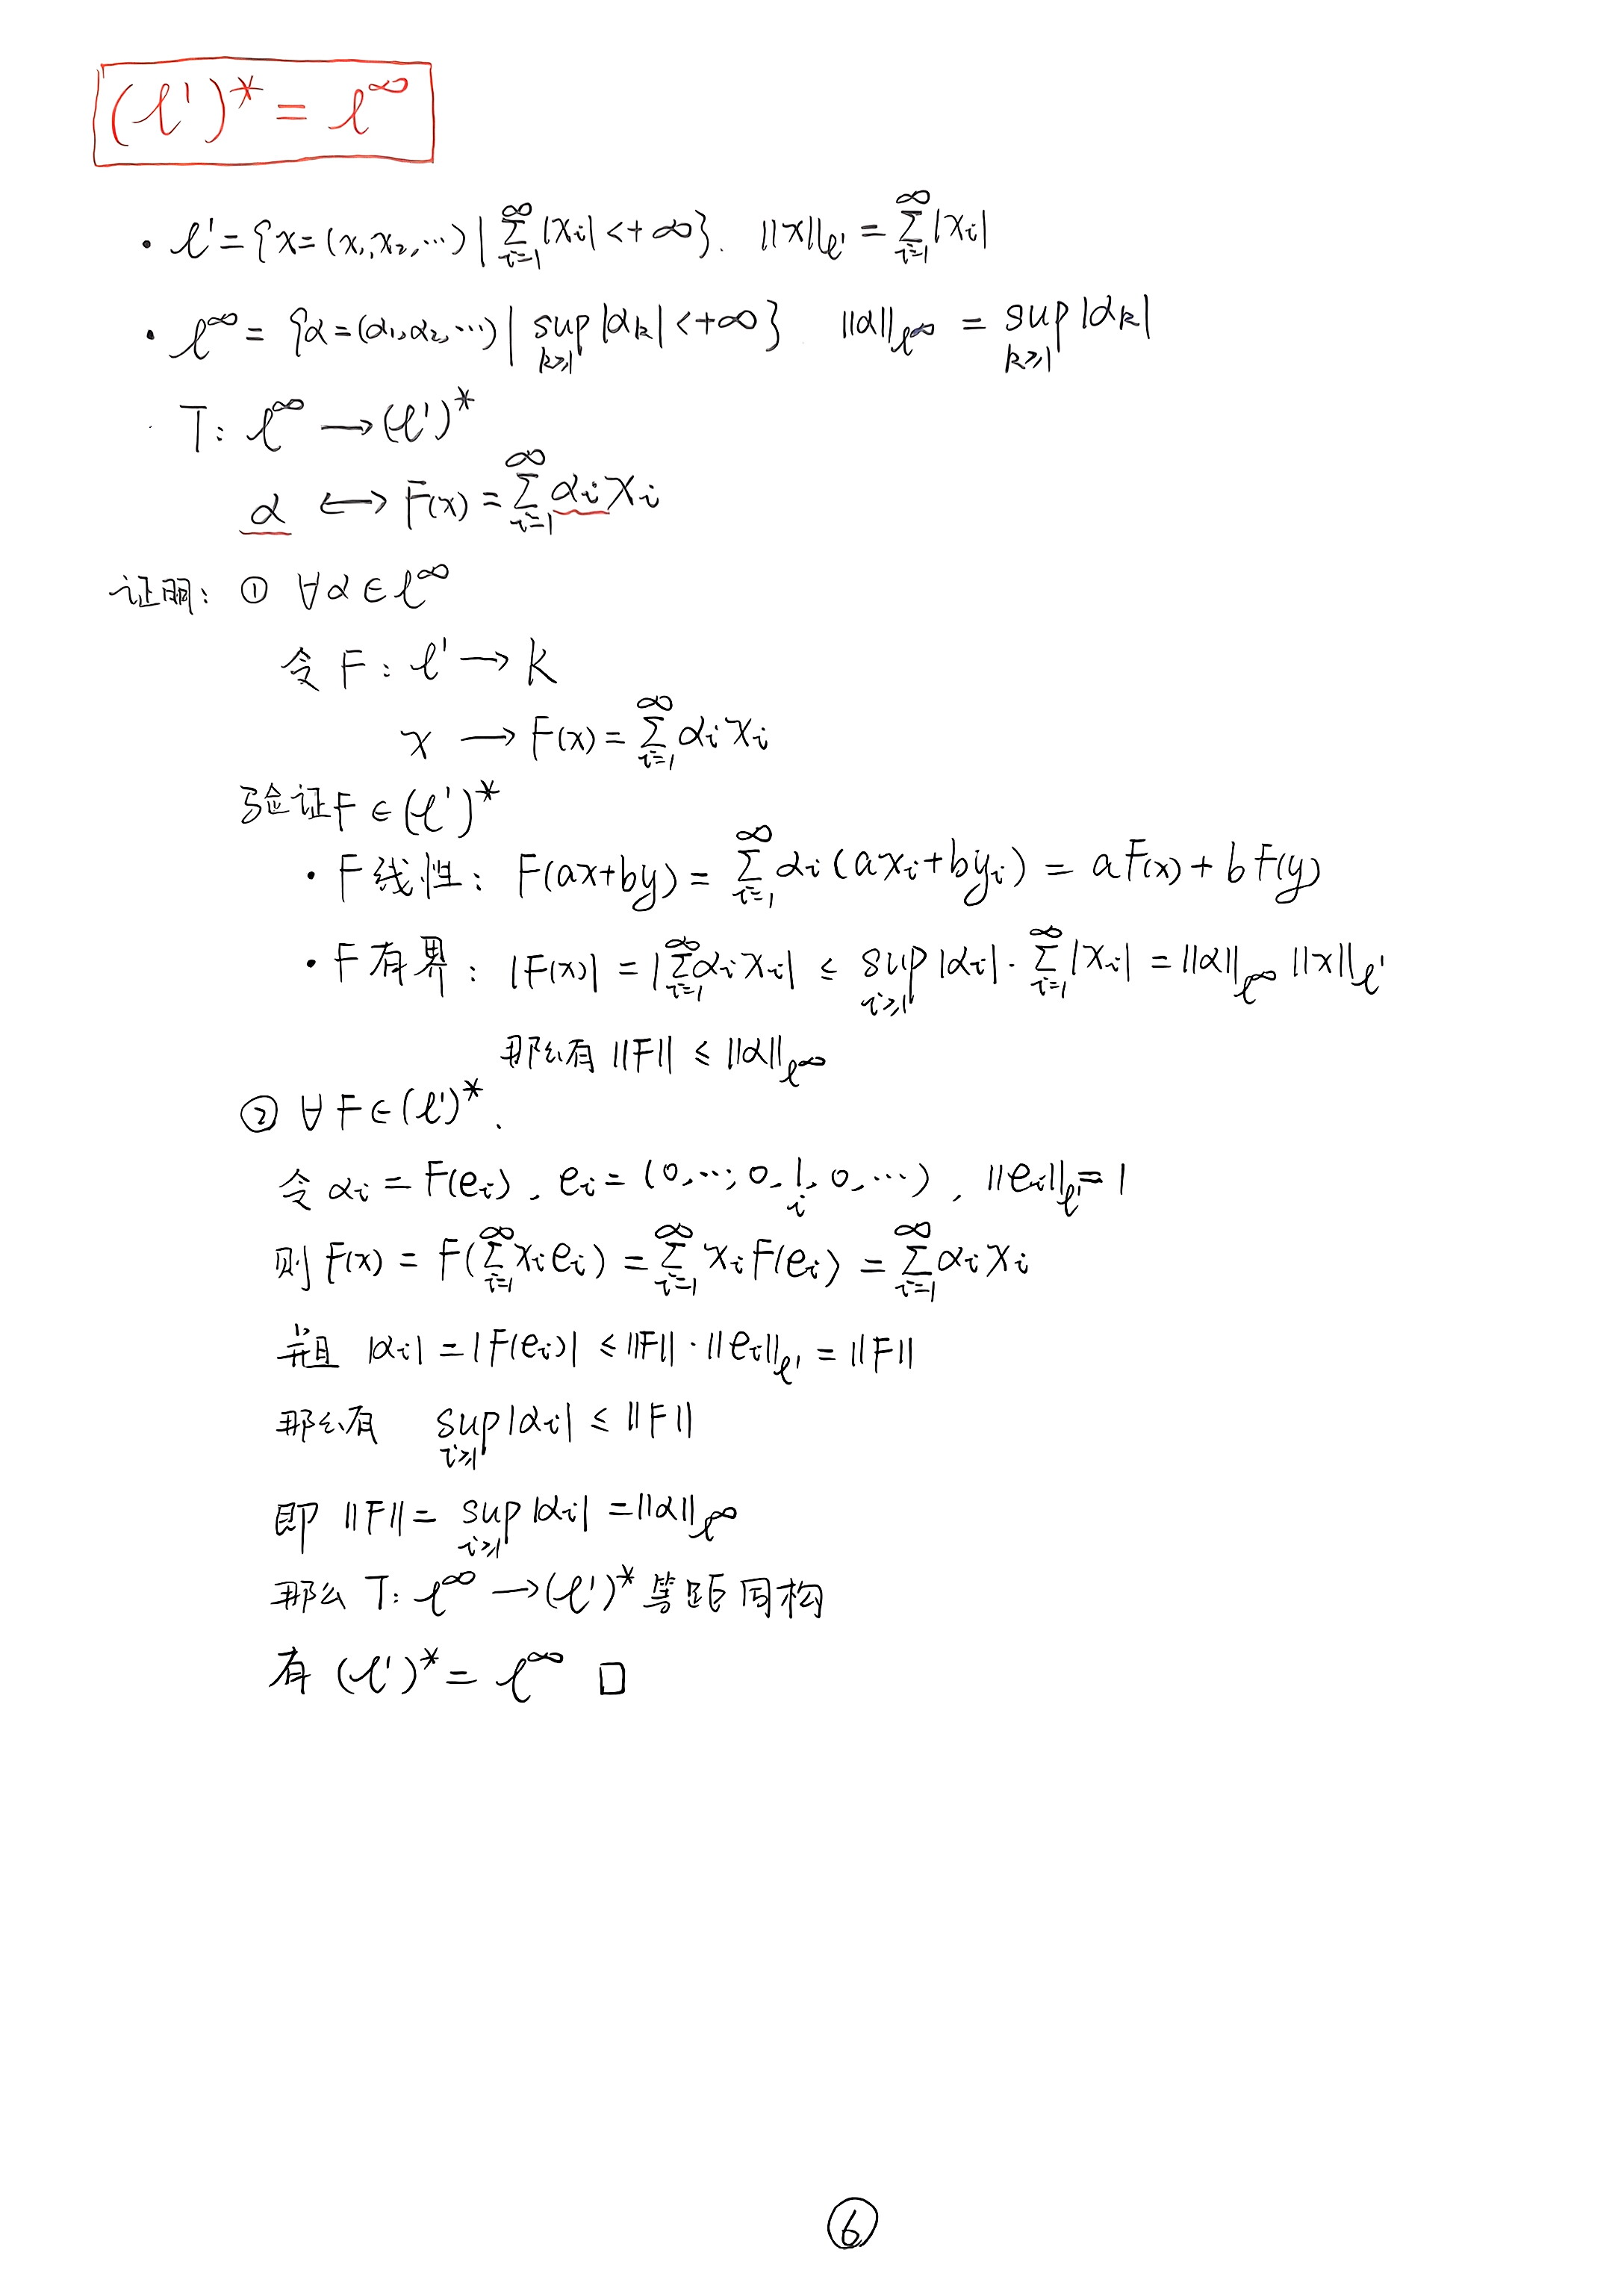 (ℓ¹)* = ℓ^∞
· ℓ¹ = {x = (x₁, x₂, ⋯) | ∑_{i=1}^∞ |x_i| < +∞}. ||x||_{ℓ¹} = ∑_{i=1}^∞ |x_i|
· ℓ^∞ = {α = (α₁, α₂, ⋯) | sup_{k≥1} |α_k| < +∞} ||α||_{ℓ^∞} = sup_{k≥1} |α_k|
· T: ℓ^∞ → (ℓ¹)*
α ↔ F(x) = ∑_{i=1}^∞ α_i x_i
证明: ① ∀ α ∈ ℓ^∞
令 F: ℓ¹ → K
x → F(x) = ∑_{i=1}^∞ α_i x_i
验证 F ∈ (ℓ¹)*
· F 线性: F(ax+by) = ∑_{i=1}^∞ α_i (ax_i + by_i) = aF(x) + bF(y)
· F 有界: |F(x)| = |∑_{i=1}^∞ α_i x_i| ≤ sup_{i≥1} |α_i| · ∑_{i=1}^∞ |x_i| = ||α||_{ℓ^∞} ||x||_{ℓ¹}
那么有 ||F|| ≤ ||α||_{ℓ^∞}
② ∀ F ∈ (ℓ¹)*.
令 α_i = F(e_i), e_i = (0, ⋯, 0, 1_i, 0, ⋯), ||e_i||_{ℓ¹} = 1
则 F(x) = F(∑_{i=1}^∞ x_i e_i) = ∑_{i=1}^∞ x_i F(e_i) = ∑_{i=1}^∞ α_i x_i
并且 |α_i| = |F(e_i)| ≤ ||F|| · ||e_i||_{ℓ¹} = ||F||
那么有 sup_{i≥1} |α_i| ≤ ||F||
即 ||F|| = sup_{i≥1} |α_i| = ||α||_{ℓ^∞}
那么 T: ℓ^∞ → (ℓ¹)* 等距同构
有 (ℓ¹)* = ℓ^∞ □
⑥